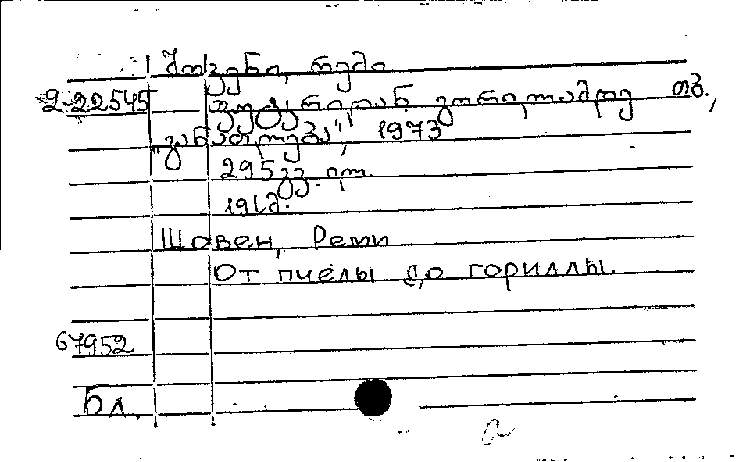 შოვენი, რემი
2-22545 ფუტკრიდან გორილამდე თბ.,
"განათლება", 1973
295 გვ. ილ.
Шовен, Реми
От пчелы до гориллы.
67952